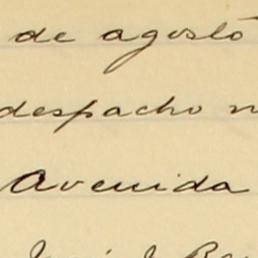 de agosto
despacho
Avenida